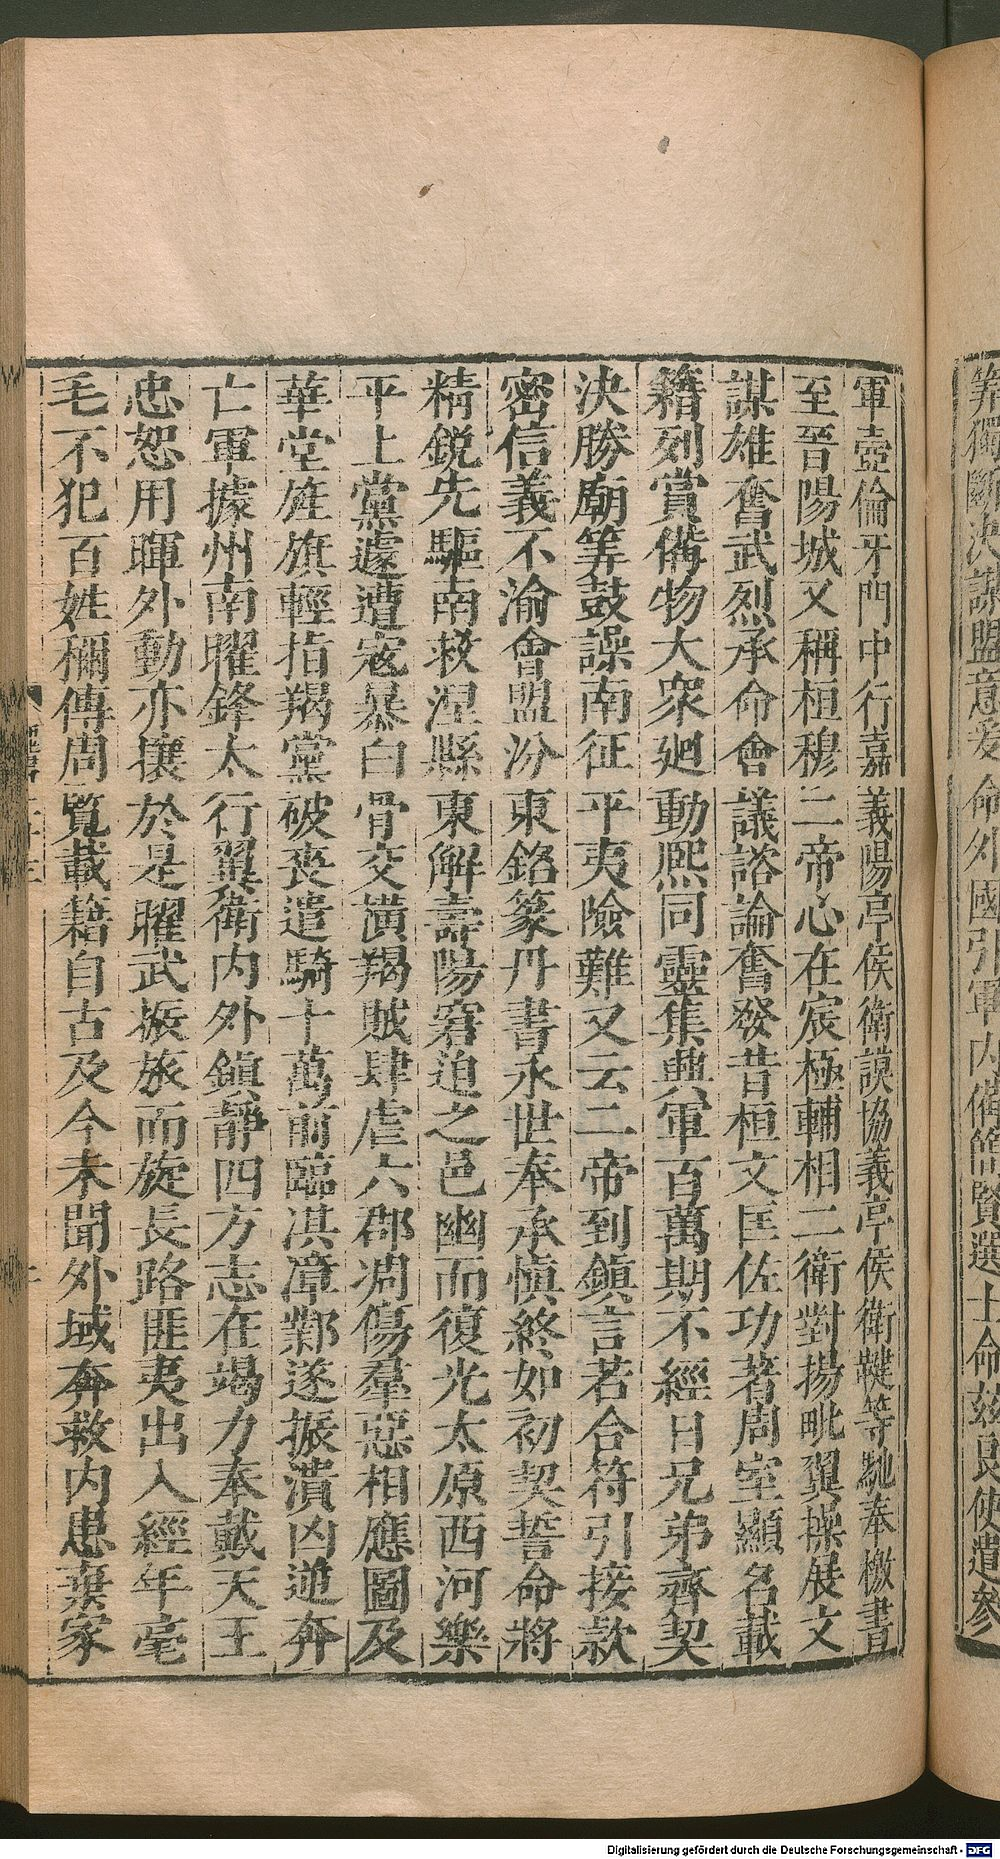 筭獨斷決謀盟意爰命外國引軍內備簡賢選士命茲良使遣參
軍壺倫牙門中行嘉義陽亭侯衛謨協義亭侯衛鞬等馳奉檄書
至晉陽城又稱桓穆二帝心在宸極輔相二衛對揚毗翼操展文
謀雄奮武烈承命會議諮論奮發昔桓文匡佐功著周室顯名載
籍列賞備物大衆廻動熙同靈集興軍百萬期不經日兄弟齊契
決勝廟筭鼓譟南征平夷險難又云二帝到鎮言若合符引接款
密信義不渝會盟汾東銘篆丹書永世奉承慎終如初契誓命將
精銳先驅南救涅縣東解壽陽窘迫之邑幽而復光太原西河樂
平上黨遽遭寇暴白骨交橫羯賊肆虐六郡凋傷羣惡相應圖及
華堂旌旗輕指羯黨破喪遣騎十萬前臨淇漳鄴遂振潰凶逆奔
亡軍據州南曜鋒太行翼衛內外鎮靜四方志在竭力奉戴天王
忠恕用暉外動亦攘於是曜武振旅而旋長路匪夷出入經年毫
毛不犯百姓稱傳周覽載籍自古及今未聞外域奔救內患棄家
Digitalisierung gefördert durch die Deutsche Forschungsgemeinschaft - DFG